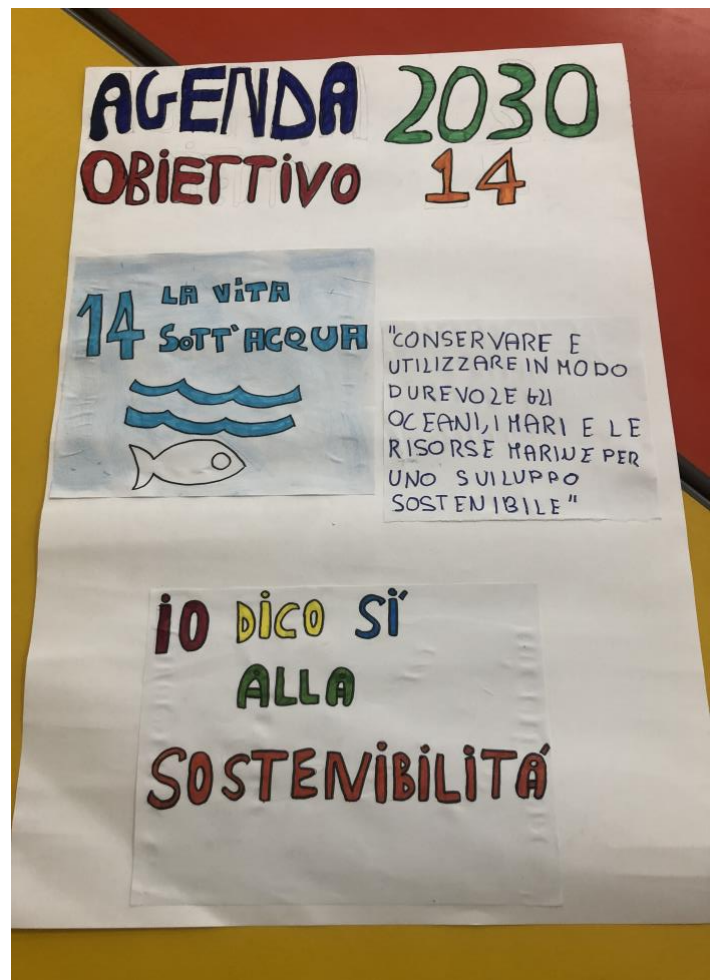 AGENDA 2030
OBIETTIVO 14
14 LA VITA
SOTT'ACQUA
"CONSERVARE E
UTILIZZARE IN MODO
DUREVOLE GLI
OCEANI, I MARI E LE
RISORSE MARINE PER
UNO SVILUPPO
SOSTENIBILE"
IO DICO SÍ
ALLA
SOSTENIBILITÁ